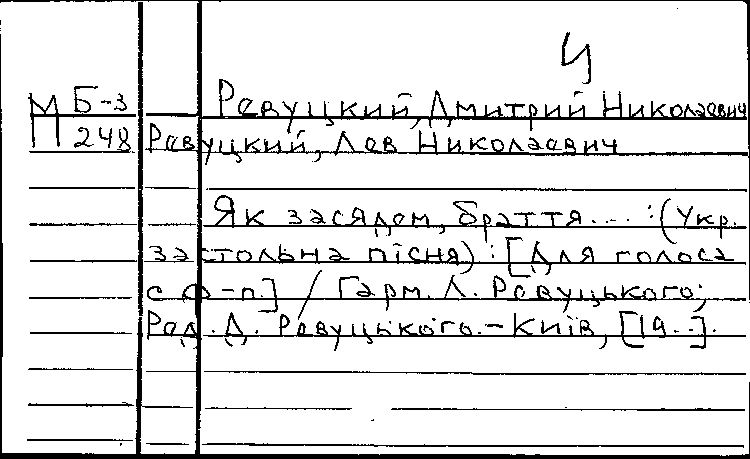 Ч
М Б-з Ревуцкий, Дмитрий Николаевич
248 Ревуцкий, Лев Николаевич
Як засядем, браття... : (Укр.
застольна пісня) : [Для голоса
с ф-п.] / Гарм. Л. Ревуцького;
Ред. Д. Ревуцького. - Київ, [19..].